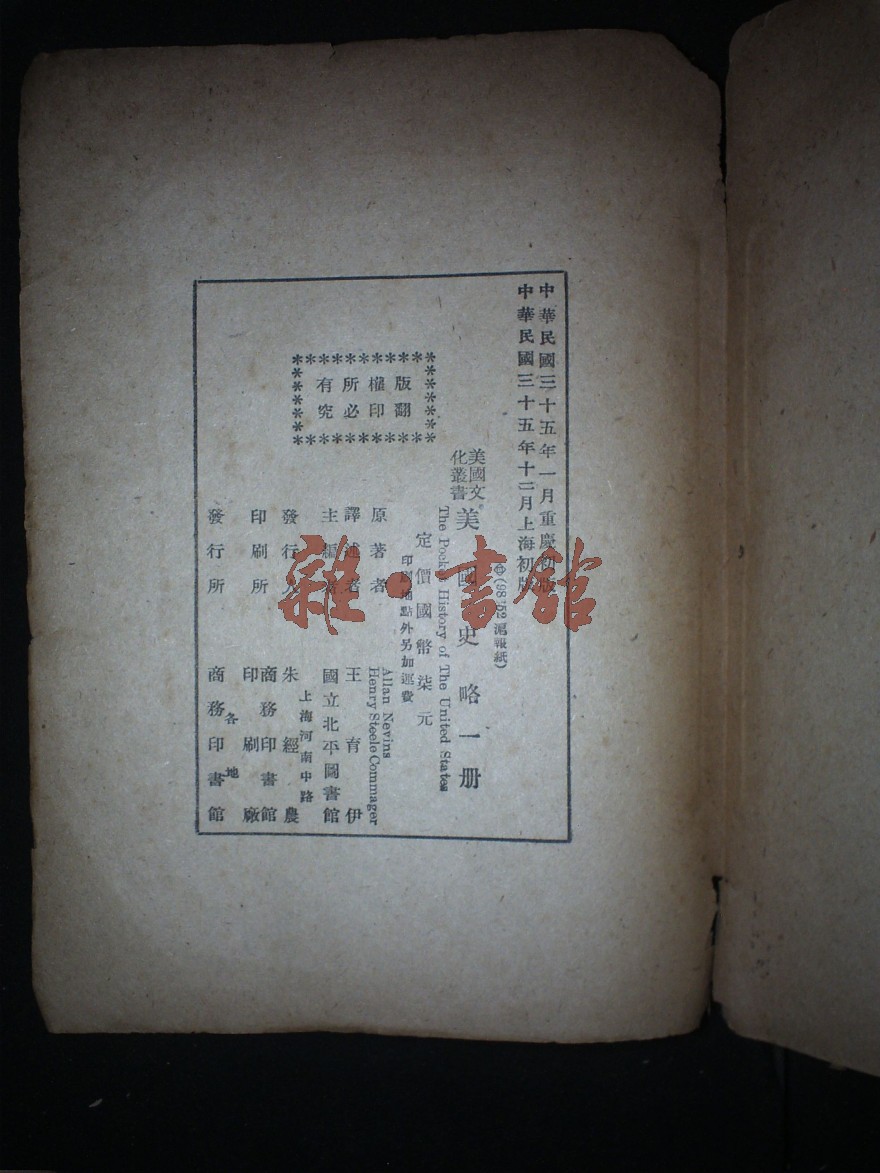 中華民國三十五年一月重慶初版
中華民國三十五年十二月上海初版
(98152滬報紙)
美國文
化叢書
美國史略一册
The Pocket History of The United States
定價國幣柒元
印刷地點外另加運費
版權所有
翻印必究
原著者 Allan Nevins
Henry Steele Commager
譯述者 王育伊
主編者 國立北平圖書館
發行人 朱經農
上海河南中路
印刷所 商務印書館
印刷廠
發行所 各地
商務印書館
雜·書館